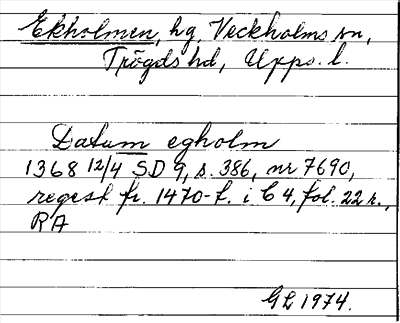 Ekholmen, hg, Veckholms sn,
Trögds hd, Upps. l.
Datum egholm
1368 12/4 SD 9, s. 386, nr 7690,
regest fr. 1470-t. i C 4, fol. 22 r.,
RA
GL 1974.